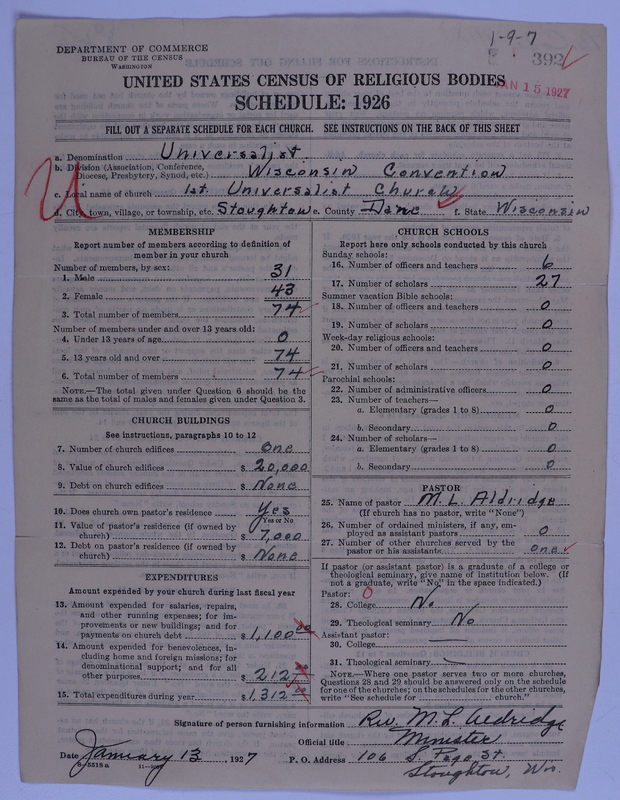 1-9-7
DEPARTMENT OF COMMERCE
BUREAU OF THE CENSUS
WASHINGTON
392
JAN 15 1927
UNITED STATES CENSUS OF RELIGIOUS BODIES
SCHEDULE: 1926
FILL OUT A SEPARATE SCHEDULE FOR EACH CHURCH. SEE INSTRUCTIONS ON THE BACK OF THIS SHEET
a. Denomination Universalist
b. Division (Association, Conference, Diocese, Presbytery, Synod, etc.) Wisconsin Convention
c. Local name of church 1st Universalist Church
d. City, town, village, or township, etc. Stoughton e. County Dane f. State Wisconsin
MEMBERSHIP
Report number of members according to definition of
member in your church
Number of members, by sex:
1. Male 31
2. Female 43
3. Total number of members 74
Number of members under and over 13 years old:
4. Under 13 years of age 0
5. 13 years old and over 74
6. Total number of members 74
NOTE.—The total given under Question 6 should be the
same as the total of males and females given under Question 3.
CHURCH BUILDINGS
See instructions, paragraphs 10 to 12
7. Number of church edifices One
8. Value of church edifices $ 20,000
9. Debt on church edifices $ None
10. Does church own pastor's residence? Yes
Yes or No
11. Value of pastor's residence (if owned by
church) $ 7,000
12. Debt on pastor's residence (if owned by
church) $ None
EXPENDITURES
Amount expended by your church during last fiscal year
13. Amount expended for salaries, repairs,
and other running expenses; for im-
provements or new buildings; and for
payments on church debt $ 1,100 00
14. Amount expended for benevolences, in-
cluding home and foreign missions; for
denominational support; and for all
other purposes $ 212
15. Total expenditures during year $ 1312 00
CHURCH SCHOOLS
Report here only schools conducted by this church
Sunday schools:
16. Number of officers and teachers 6
17. Number of scholars 27
Summer vacation Bible schools:
18. Number of officers and teachers 0
19. Number of scholars 0
Week-day religious schools:
20. Number of officers and teachers 0
21. Number of scholars 0
Parochial schools:
22. Number of administrative officers 0
23. Number of teachers—
a. Elementary (grades 1 to 8) 0
b. Secondary 0
24. Number of scholars—
a. Elementary (grades 1 to 8) 0
b. Secondary 0
PASTOR
25. Name of pastor M. L. Aldridge
(If church has no pastor, write "None")
26. Number of ordained ministers, if any, em-
ployed as assistant pastors 0
27. Number of other churches served by the
pastor or his assistants one
If pastor (or assistant pastor) is a graduate of a college or
theological seminary, give name of institution below. (If
not a graduate, write "No" in the space indicated.)
Pastor: 0
28. College No
29. Theological seminary No
Assistant pastor:
30. College
31. Theological seminary
NOTE.—Where one pastor serves two or more churches,
Questions 28 and 29 should be answered only on the schedule
for one of the churches; on the schedules for the other churches,
write "See schedule for church."
Signature of person furnishing information Rev. M. L. Aldridge
Official title Minister
Date January 13, 1927 P. O. Address 106 S. Page St.
8-5518 a
Stoughton, Wis.